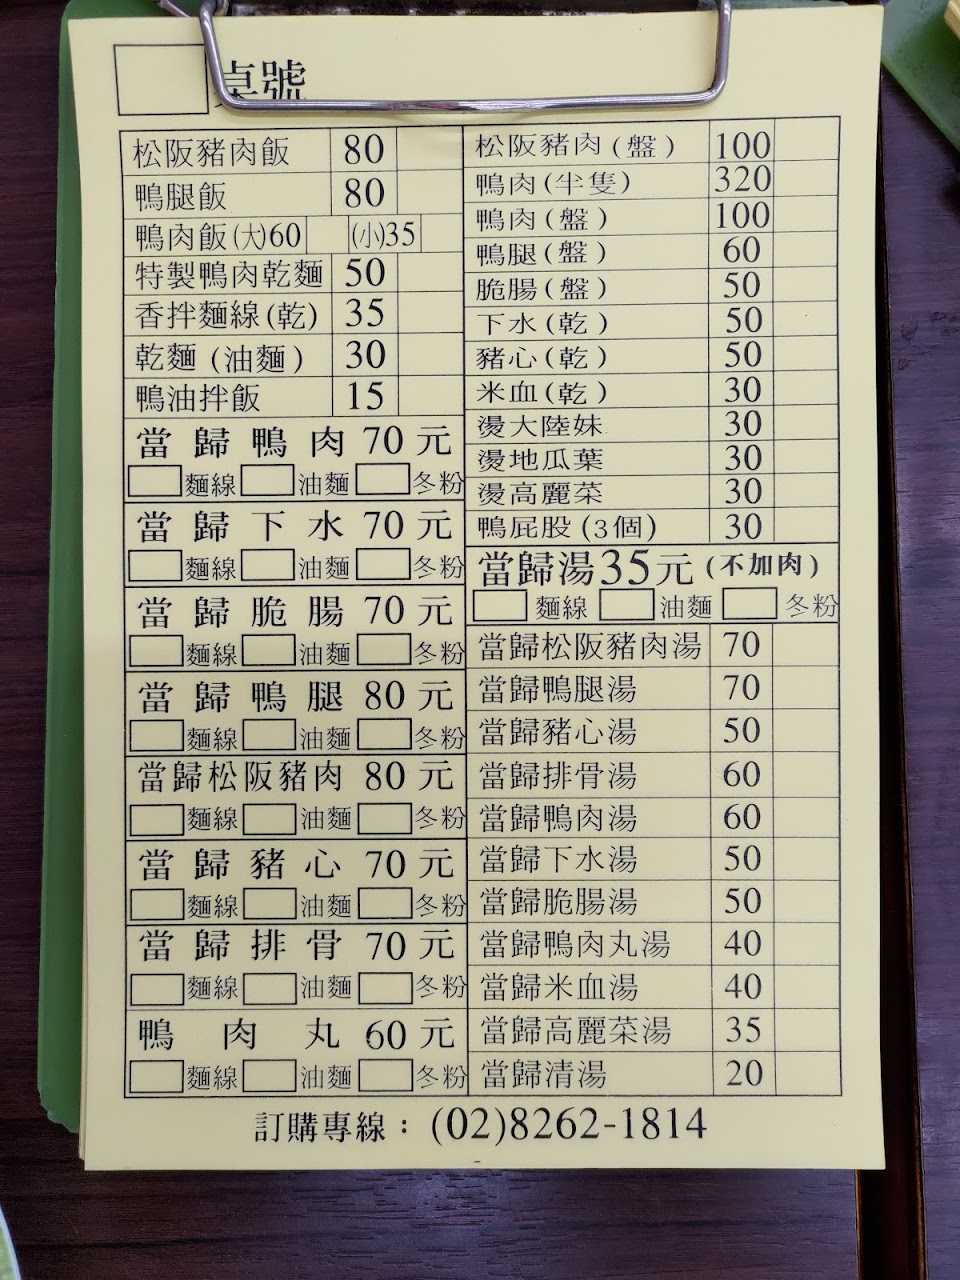 桌號
松阪豬肉飯 80
鴨腿飯 80
鴨肉飯(大)60 (小)35
特製鴨肉乾麵 50
香拌麵線(乾) 35
乾麵(油麵) 30
鴨油拌飯 15
當歸鴨肉70元
麵線 油麵 冬粉
當歸下水70元
麵線 油麵 冬粉
當歸脆腸70元
麵線 油麵 冬粉
當歸鴨腿80元
麵線 油麵 冬粉
當歸松阪豬肉80元
麵線 油麵 冬粉
當歸豬心70元
麵線 油麵 冬粉
當歸排骨70元
麵線 油麵 冬粉
鴨肉丸60元
麵線 油麵 冬粉
松阪豬肉(盤) 100
鴨肉(半隻) 320
鴨肉(盤) 100
鴨腿(盤) 60
脆腸(盤) 50
下水(乾) 50
豬心(乾) 50
米血(乾) 30
燙大陸妹 30
燙地瓜葉 30
燙高麗菜 30
鴨屁股(3個) 30
當歸湯35元(不加肉)
麵線 油麵 冬粉
當歸松阪豬肉湯 70
當歸鴨腿湯 70
當歸豬心湯 50
當歸排骨湯 60
當歸鴨肉湯 60
當歸下水湯 50
當歸脆腸湯 50
當歸鴨肉丸湯 40
當歸米血湯 40
當歸高麗菜湯 35
當歸清湯 20
訂購專線：(02)8262-1814